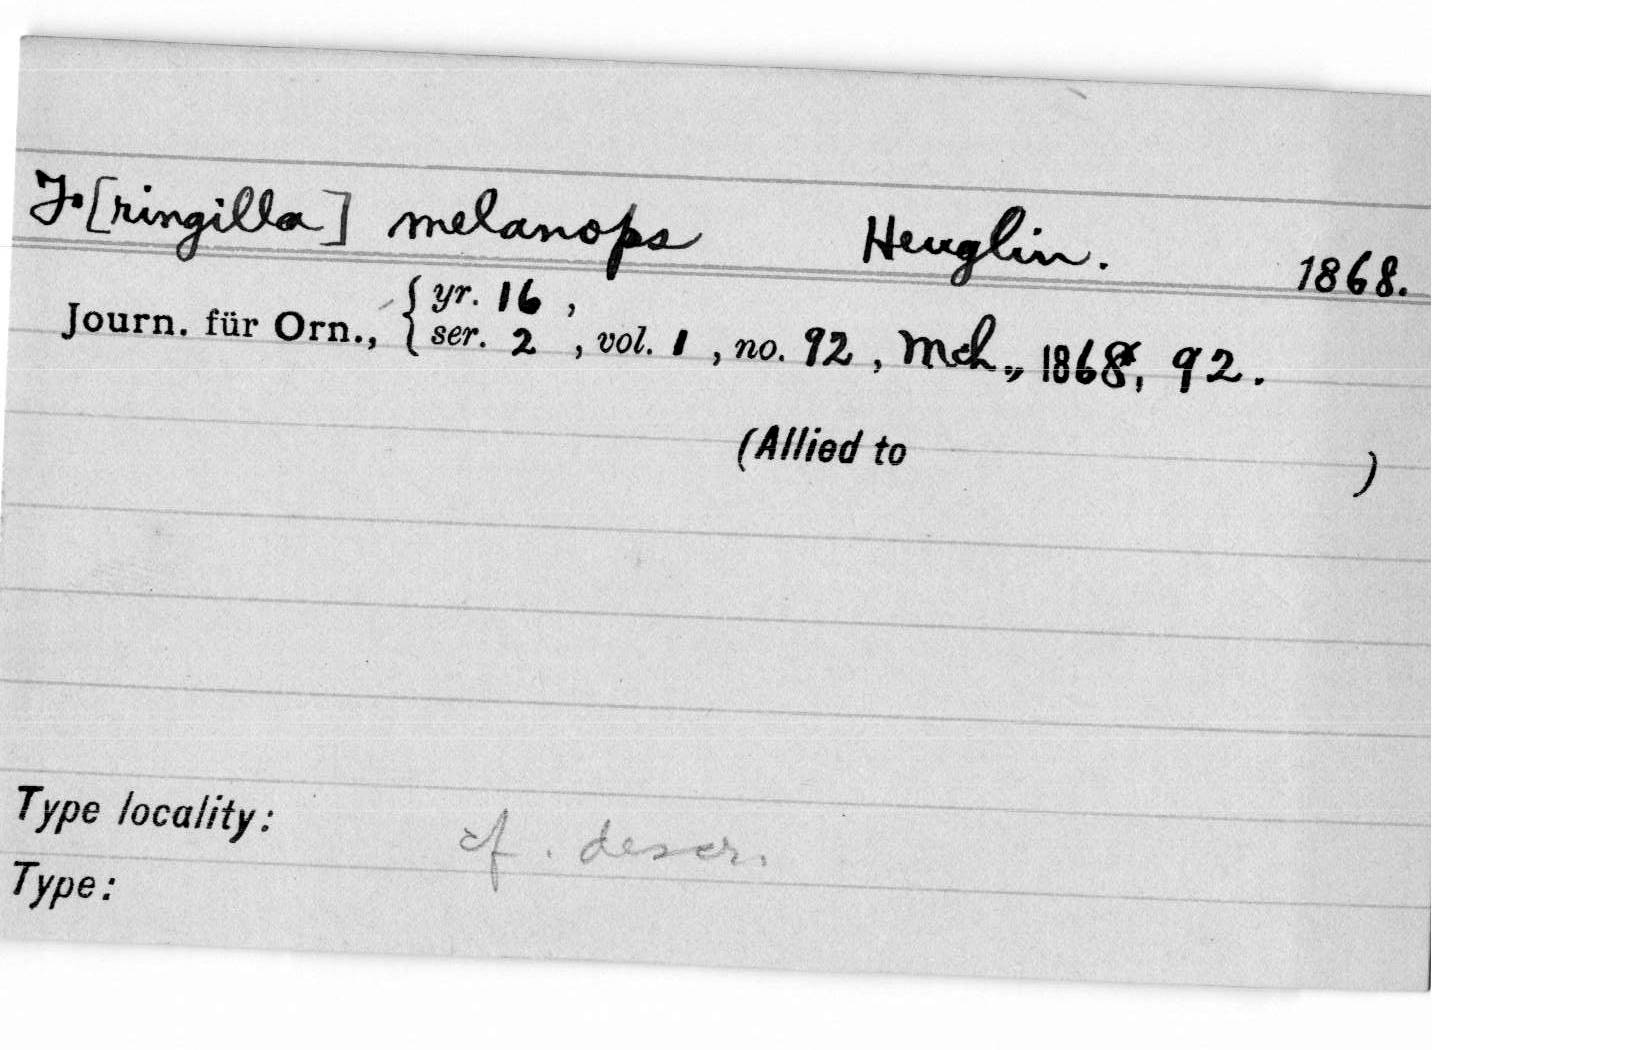 F.[ringilla] melanops Heuglin. 1868.
Journ. für Orn., { yr. 16 ,
ser. 2 , vol. 1 , no. 92 , Mch., 1868, 92.
(Allied to )
Type locality: cf. descr.
Type: